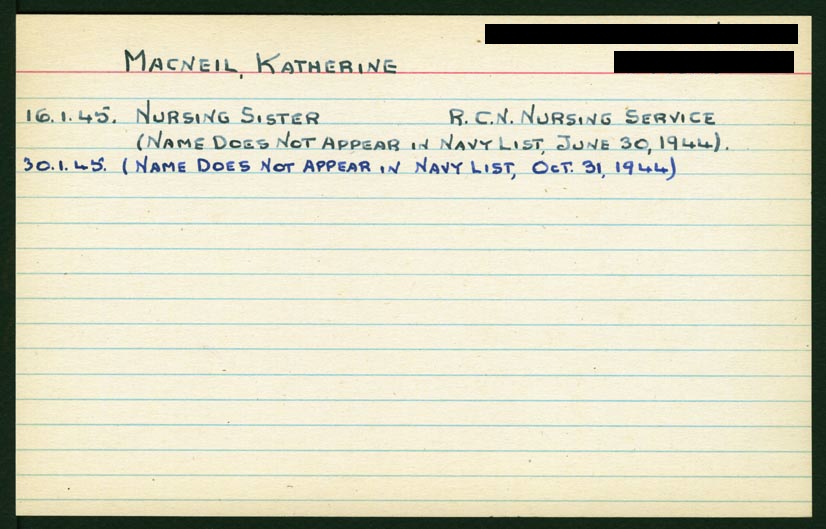 MACNEIL, KATHERINE
16.1.45. NURSING SISTER R.C.N. NURSING SERVICE
(NAME DOES NOT APPEAR IN NAVY LIST, JUNE 30, 1944).
30.1.45. (NAME DOES NOT APPEAR IN NAVY LIST, OCT. 31, 1944)